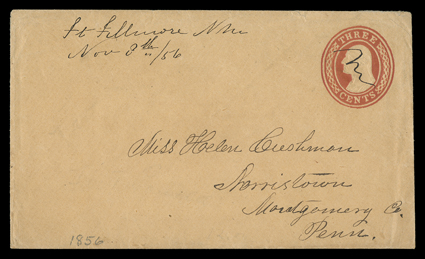 Ft Fillmore N.M.
Nov 8th/56
THREE
CENTS
Miss Helen Cushman
Norristown
Montgomery Co.
Penn.
1856